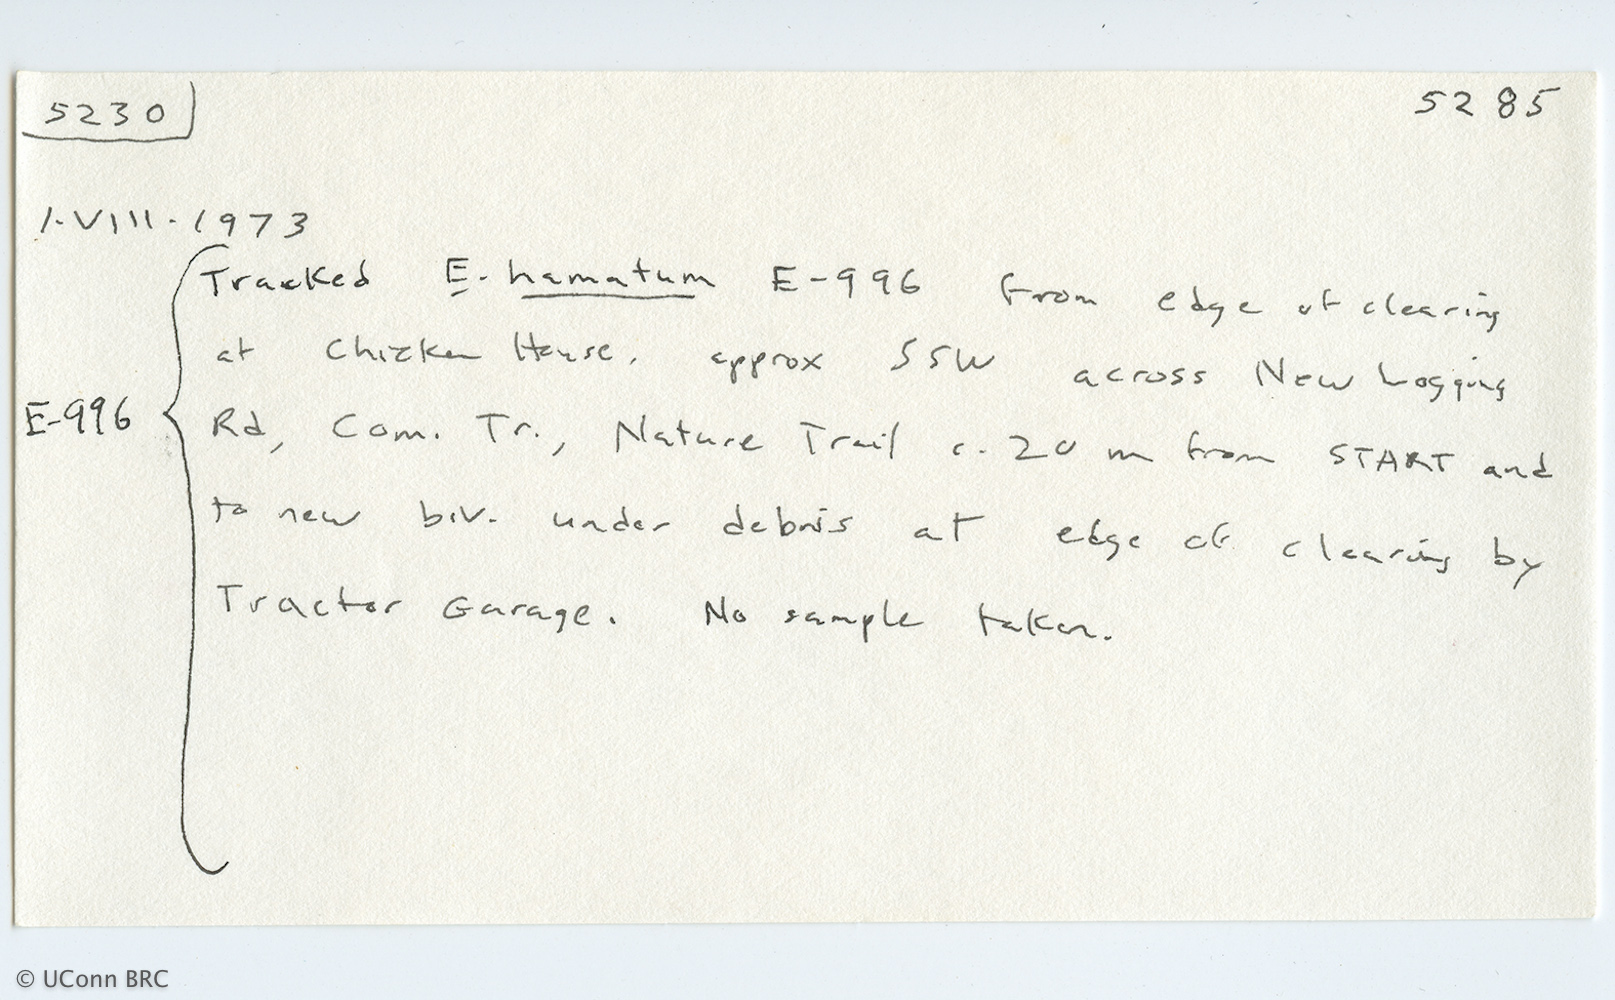 5230
5285
1.VIII.1973
Tracked E. hamatum E-996 from edge of clearing
at Chicken House, approx SSW across New Logging
E-996
Rd, Com. Tr., Nature Trail c. 20 m from START and
to new biv. under debris at edge of clearing by
Tractor Garage. No sample taken.
© UConn BRC